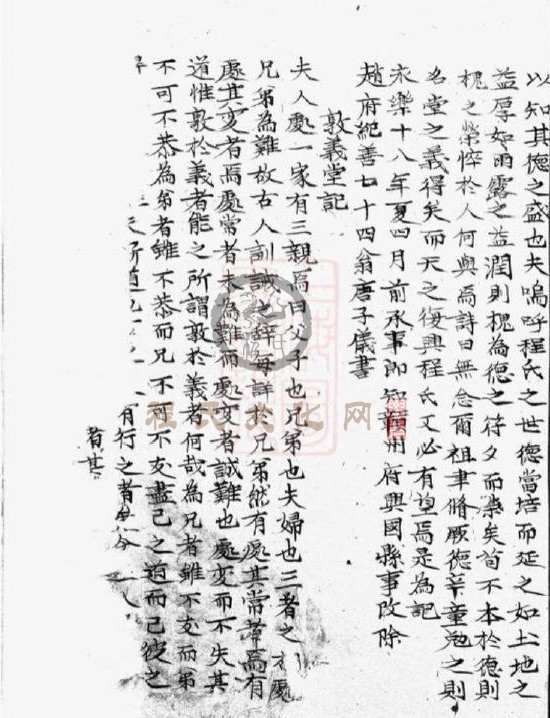 以知其德之盛也夫嗚呼程氏之世德當培而延之如土地之
益厚如雨露之益潤則槐為德之符久而崇矣茍不本於德則
槐之榮悴於人何與焉詩曰無念爾祖聿脩厥德辛童勉之則
名堂之義得矣而天之復興程氏又必有望焉是為記
永樂十八年夏四月前承事郎知贛州府興國縣事改除
趙府紀善七十四翁唐子儀書
敦義堂記
夫人處一家有三親焉曰父子也兄弟也夫婦也三者之 處
兄弟為難故古人訓誡之辞每詳於兄弟然有處其常者焉有
處其变者焉處常者未為難而處变者誠難也處变而不失其
道惟敦於義者能之所謂敦於義者何哉為兄者雖不友而弟
不可不恭為弟者雖不恭而兄不可不友盡己之道而已彼之
有行之者
者其
程氏文化网